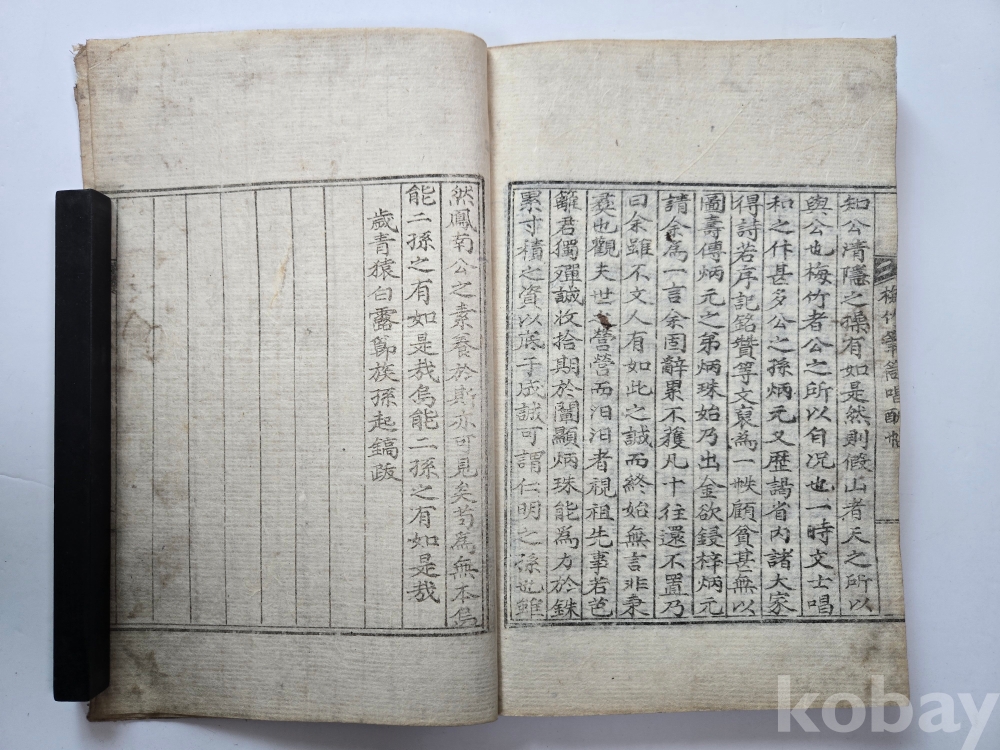 知公淸隱之操有如是然則假山者天之所以
與公也梅竹者公之所以自况也一時文士唱
和之作甚多公之孫炳元又歷謁省內諸大家
得詩若序記銘贊等文裒爲一帙顧貧甚無以
圖壽傳炳元之弟炳珠始乃出金欲鋟梓炳元
請余爲一言余固辭累不獲凡十往還不置乃
曰余雖不文人有如此之誠而終始無言非秉
彛也觀夫世之營營而汨汨者視祖先事若芭
籬君獨殫誠收拾期於闡顯炳珠能爲方於銖
累寸積之資以底于成誠可謂仁明之孫也雖
梅竹軒 唱酬
然鳳南公之素養於是亦可見矣苟爲無本烏
能二孫之有如是哉烏能二孫之有如是哉
歲靑猿白露節族孫起鎬跋
kobay